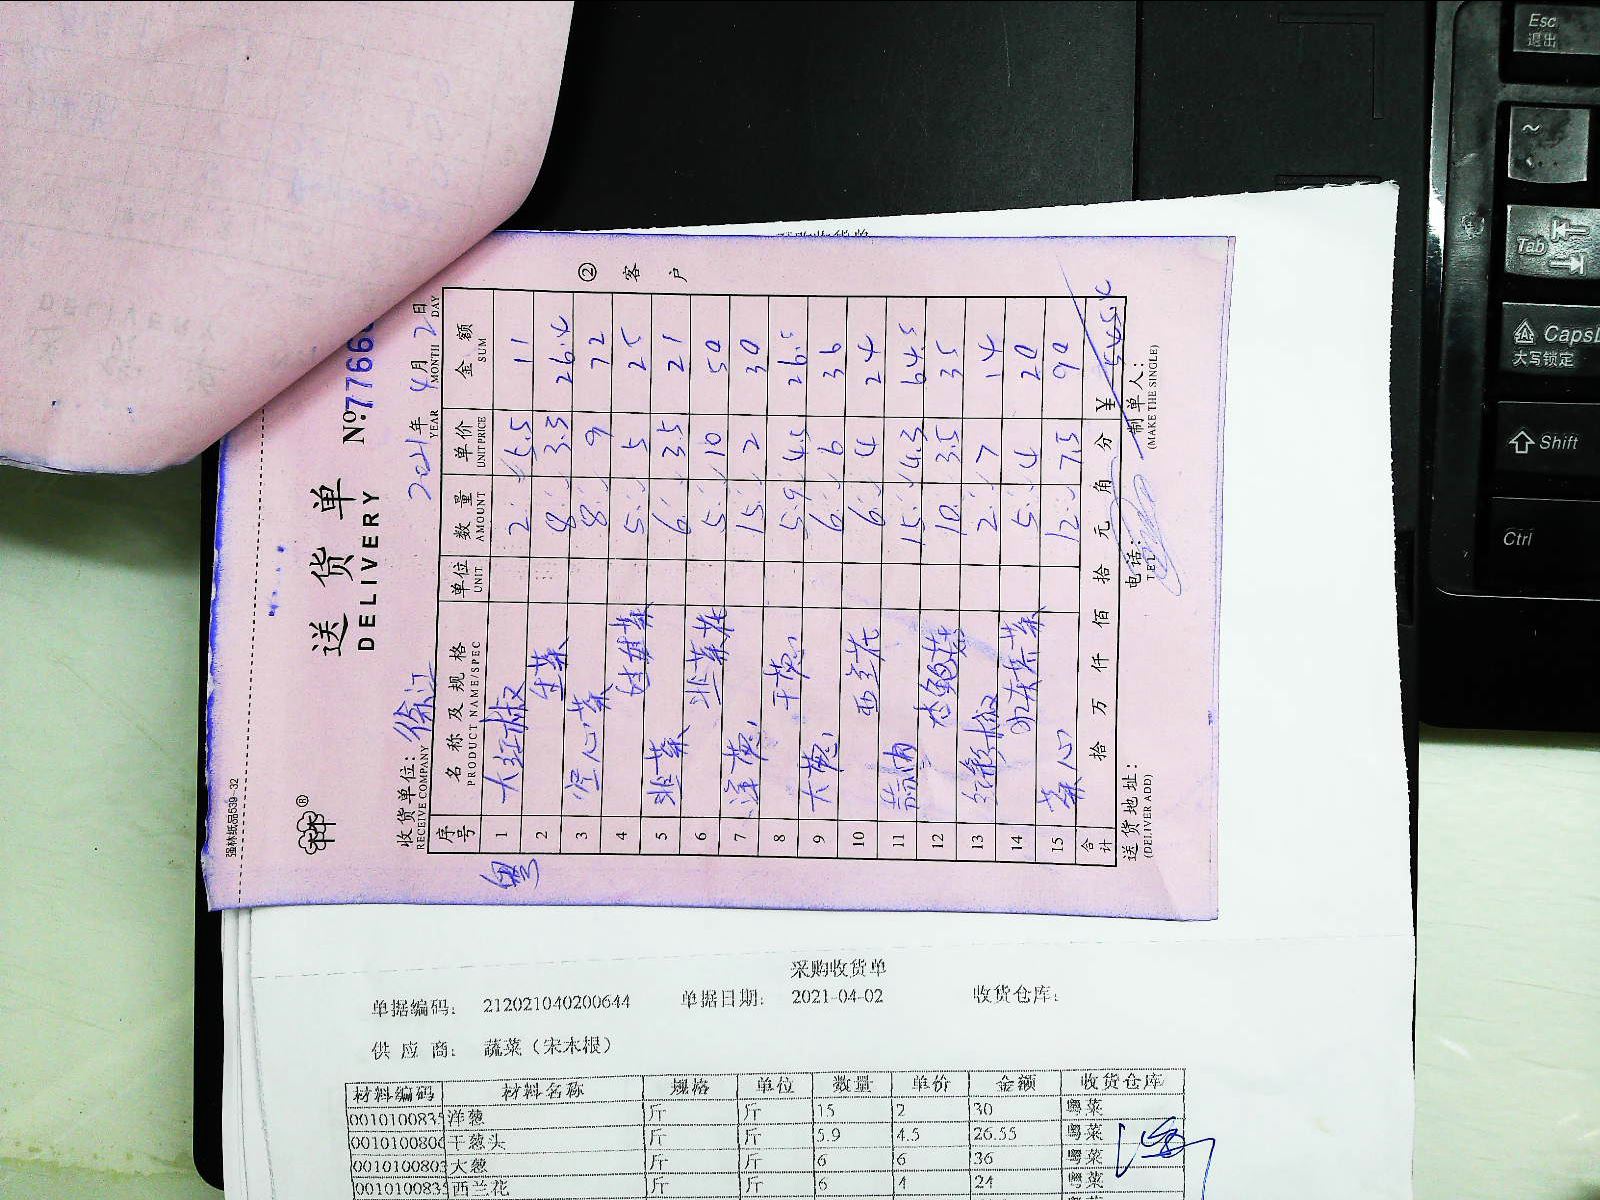 强林纸品539-32
送货单
DELIVERY
No.7766
② 客户
收货单位： 徐汇
RECEIVE COMPANY
2021年 4月 2日
YEAR MONTH DAY
序号 名称及规格 单位 数量 单价 金额
PRODUCT NAME/SPEC UNIT AMOUNT UNIT PRICE SUM
粤
1 大红椒 2 5.5 11
2 生菜 8 3.3 26.4
3 空心菜 8 9 72
4 娃娃菜 5 5 25
5 韭菜 6 3.5 21
6 韭菜花 5 10 50
7 洋葱 15 2 30
8 干葱 5.9 4.5 26.5
9 大葱 6 6 36
10 西兰花 6 4 24
11 15 4.3 64.5
12 杏鲍菇 10 3.5 35
13 红彩椒 2 7 14
14 5 4 20
15 菜心 12 7.5 90
合计 拾 万 仟 佰 拾 元 角 分 ¥ 545.4
送货地址： 电话： 制单人：
(DELIVER ADD) TEL (MAKE THE SINGLE)
采购收货单
单据编码： 212021040200644 单据日期： 2021-04-02 收货仓库：
供应商： 蔬菜（宋木根）
材料编码 材料名称 规格 单位 数量 单价 金额 收货仓库
001010083 洋葱 斤 斤 15 2 30 粤菜
001010080 干葱头 斤 斤 5.9 4.5 26.55 粤菜
001010080 大葱 斤 斤 6 6 36 粤菜
001010083 西兰花 斤 斤 6 4 24 粤菜
Esc
退出
~
Tab
CapsL
大写锁定
Shift
Ctrl